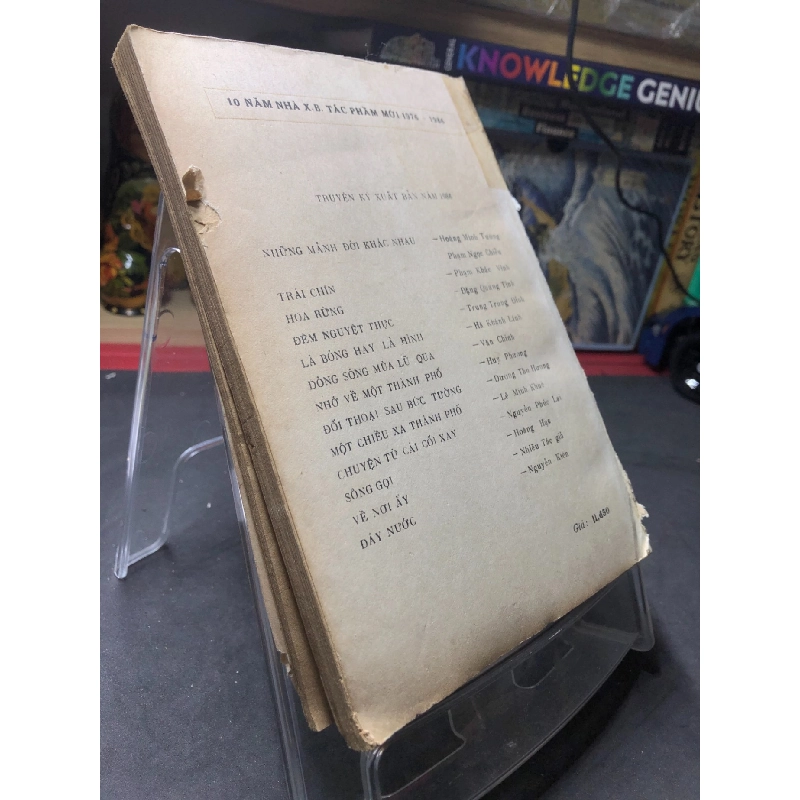 GENERAL
KNOWLEDGE GENIUS
Finance
HISTORY
10 NĂM NHÀ X.B. TÁC PHẨM MỚI 1976 - 1986
TRUYỆN KÝ XUẤT BẢN NĂM 1986
NHỮNG MẢNH ĐỜI KHÁC NHAU – Hoàng Minh Tường
Phạm Ngọc Chiểu
TRÁI CHÍN – Phạm Khắc
HOA RỪNG – Đặng Quang Tình
ĐÊM NGUYỆT THỰC – Trung Trung Đỉnh
LÀ BÓNG HAY LÀ HÌNH – Hà Khánh Linh
DÒNG SÔNG MÙA LŨ QUA – Văn Chinh
NHỚ VỀ MỘT THÀNH PHỐ – Huy Phương
ĐỐI THOẠI SAU BỨC TƯỜNG – Dương Thu Hương
MỘT CHIỀU XA THÀNH PHỐ – Lê Minh Khuê
CHUYỆN TỪ CÁI CỐI XAY – Nguyễn Phúc Lai
SÔNG GỌI – Hoàng Hạc
VỀ NƠI ẤY – Nhiều Tác giả
DÁY NƯỚC – Nguyễn Kiên
Giá: 11.650